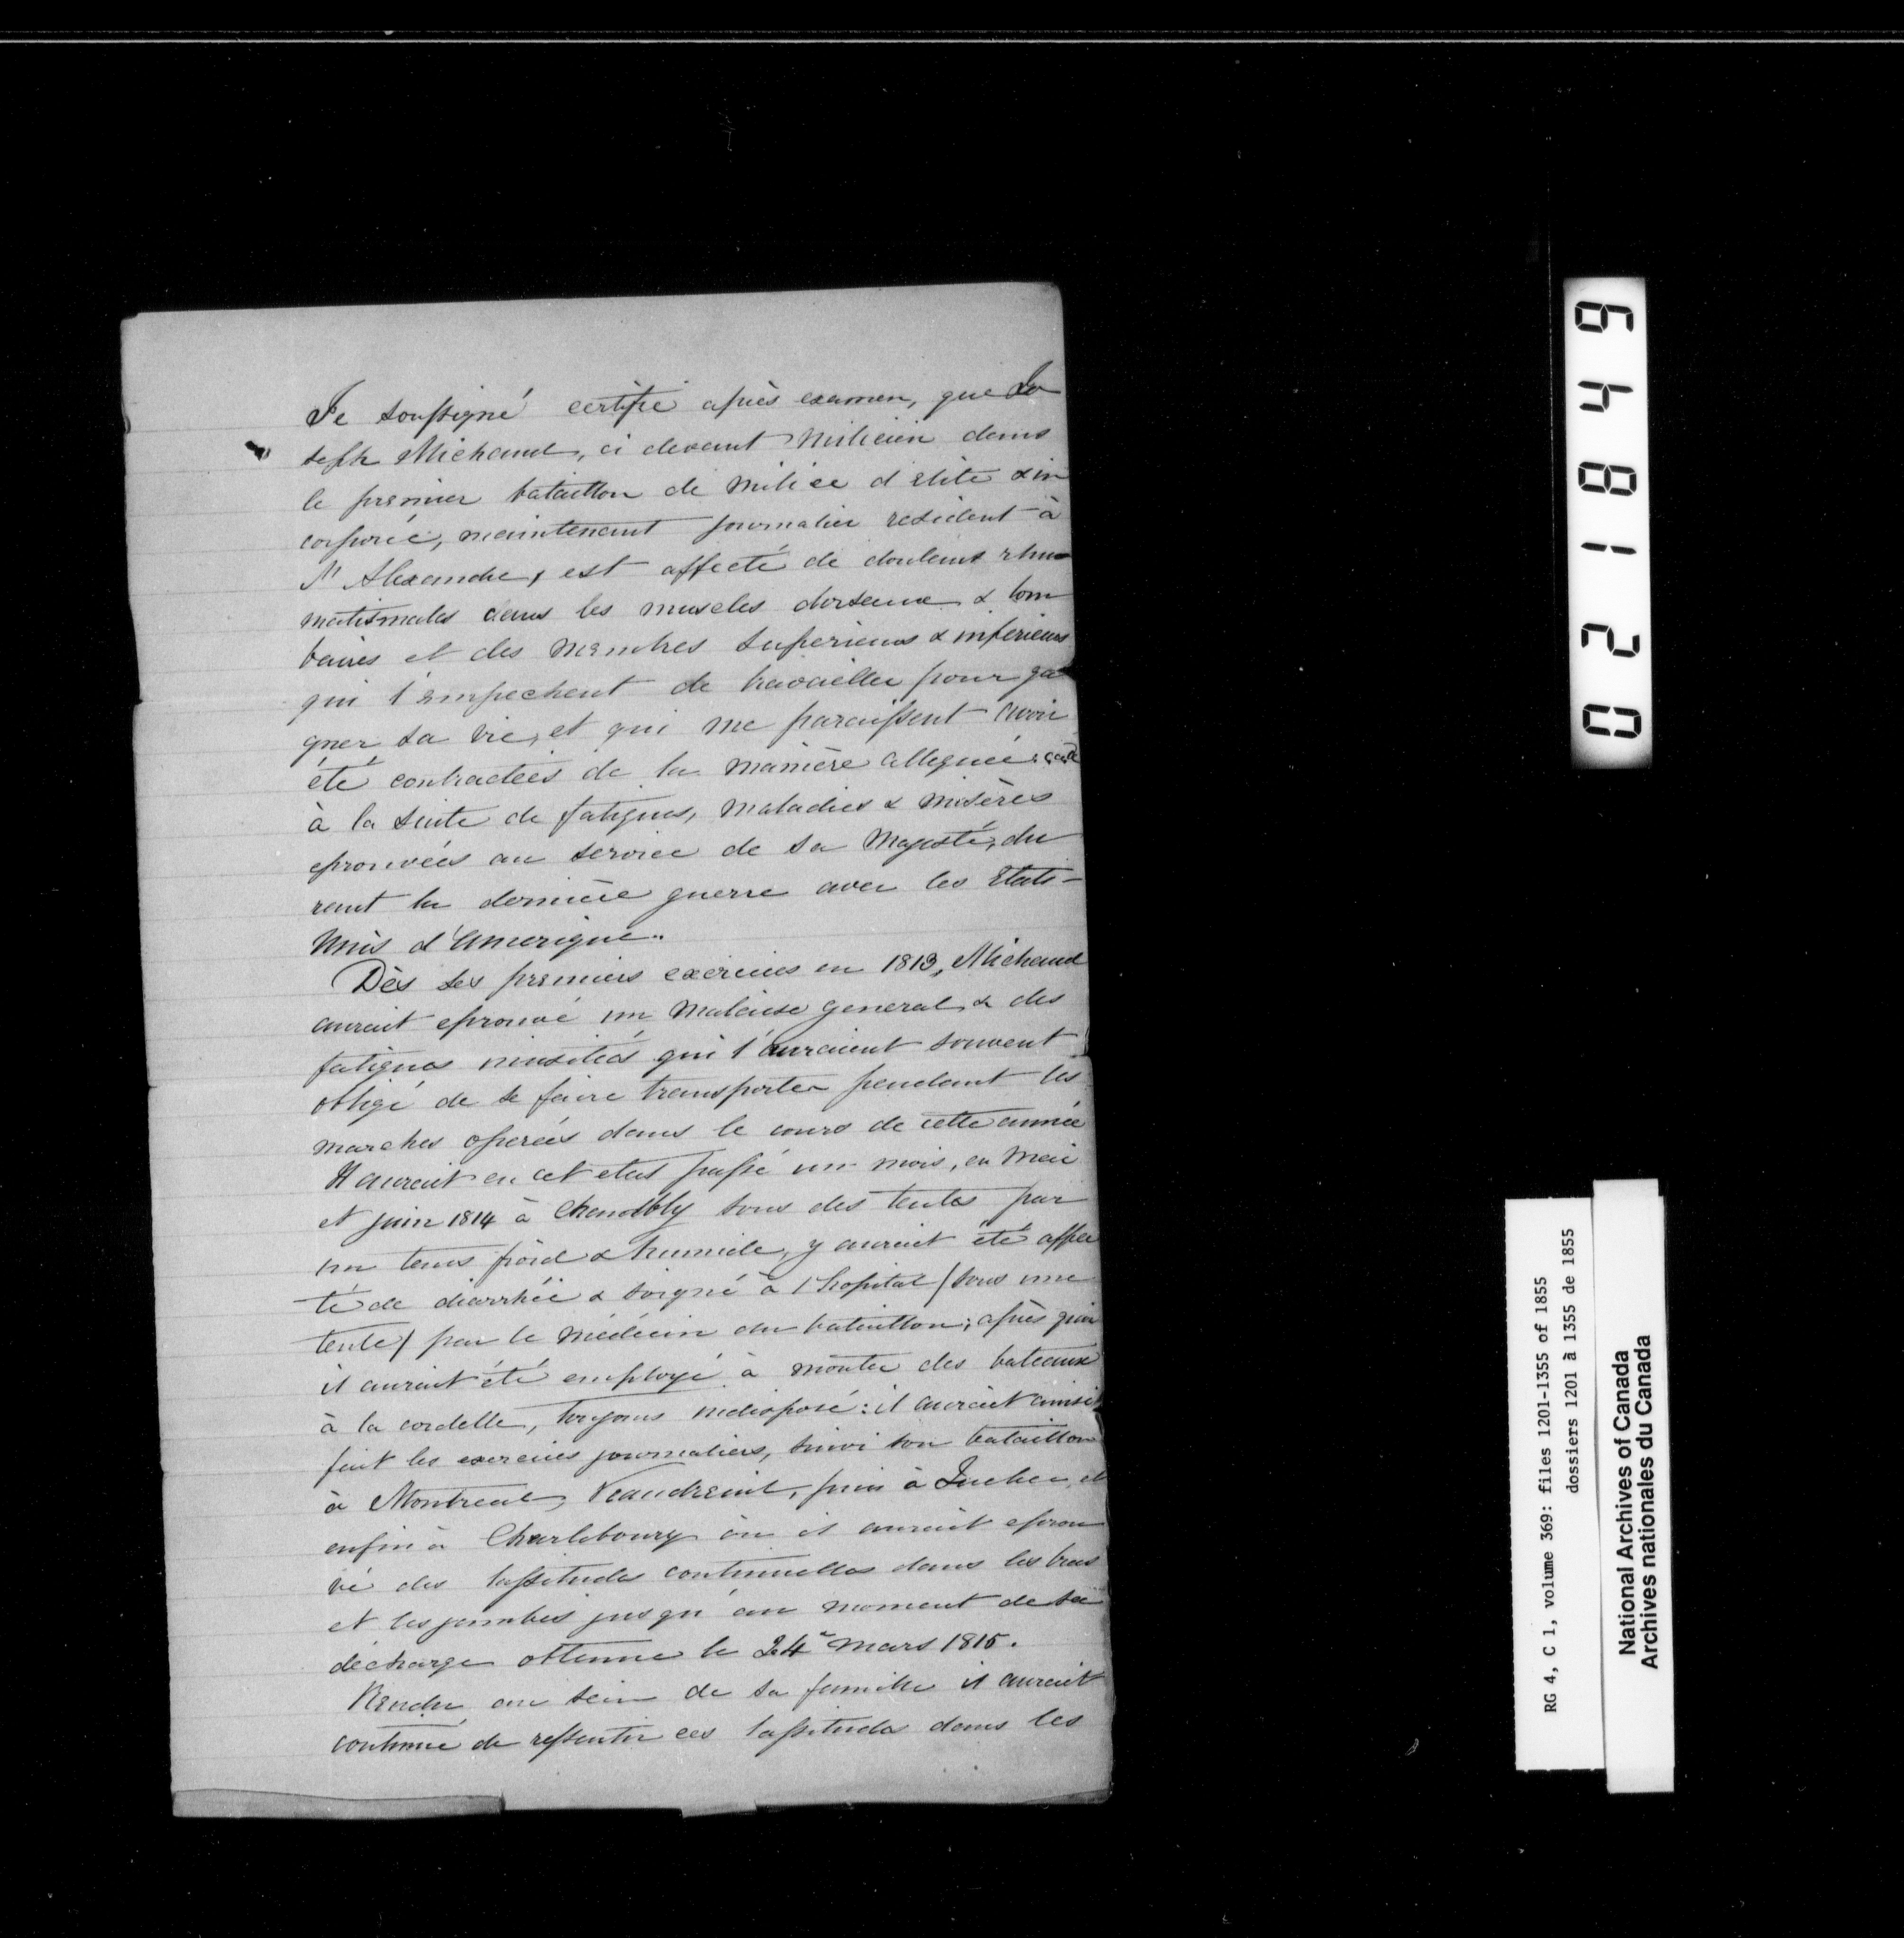 Je soussigné certifie après examen, que Jo
seph Michaud, ci devant milicien dans
le premier bataillon de milice d'elite & in
corporée, maintenant journalier resident à
St Alexandre, est affecté de douleurs rhu
matismales dans les muscles dorseaux & lom
baires et des membres superieurs & inferieurs
qui l'empechent de travailler pour ga
gner sa vie, et qui me paraissent avoir
été contractées de la manière alleguée, càd
à la suite de fatigues, maladies & misères
eprouvées au service de Sa Majesté, du
rant la dernière guerre avec les Etats-
Unis d'Amerique.
Dès ses premiers exercices en 1813, Michaud
aurait eprouvé un malaise general & des
fatigues inusitées qui l'auraient souvent
obligé de se faire transporter pendant les
marches operées dans le cours de cette année
Il aurait en cet etat passé un mois, en Mai
et juin 1814 à Chambly sous des tentes par
un tems froid & humide, y aurait été affec
té de diarrhée & soigné à l'hopital (sous une
tente) par le médecin du bataillon; après quoi
il aurait été employé à monter des bateaux
à la cordelle, toujours indisposé: il aurait ainsi
fait les exercices journaliers, suivi son bataillon
à Montreal, Vaudreuil, puis à Quebec, et
enfin à Charlebourg où il aurait eprou
vé des lassitudes continuelles dans les bras
et les jambes jusqu'au moment de sa
décharge obtenue le 24e mars 1815.
Rendu au sein de sa famille il aurait
continué de ressentir ces lassitudes dans les
021849
RG 4, C 1, volume 369: files 1201-1355 of 1855
dossiers 1201 à 1355 de 1855
National Archives of Canada
Archives nationales du Canada